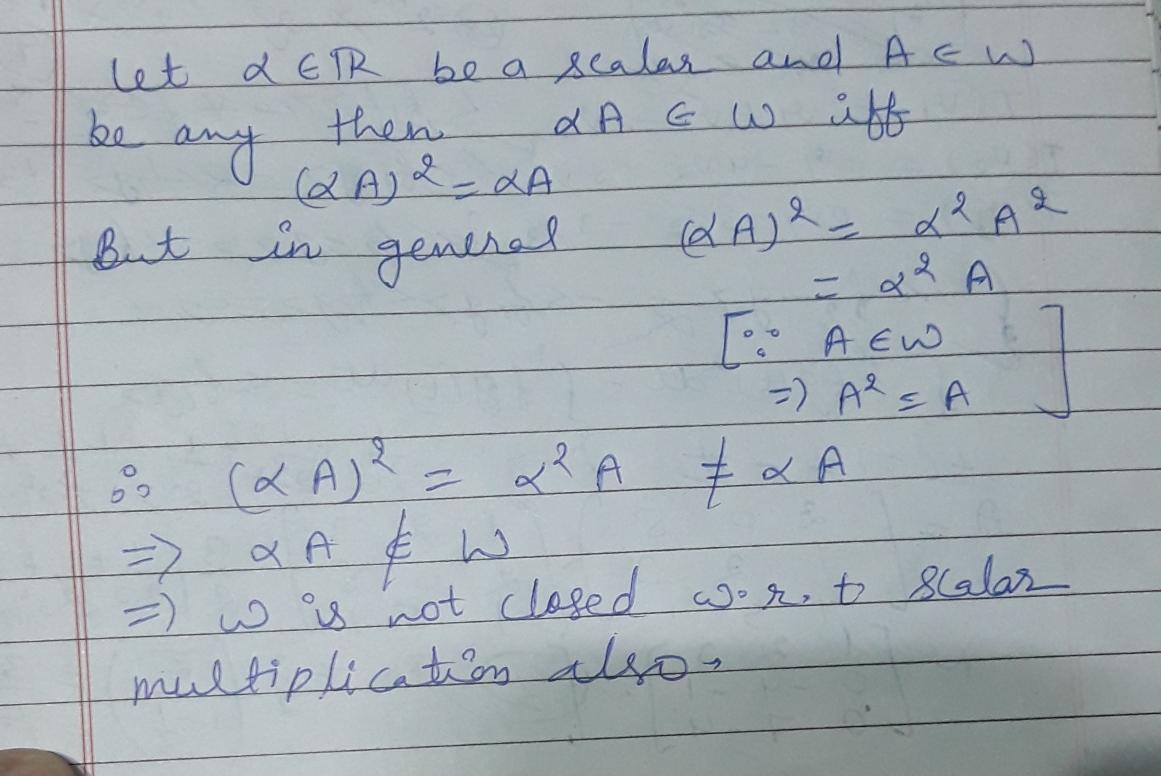 let α ∈ ℝ be a scalar and A ∈ W
be any then αA ∈ W iff
(αA)² = αA
But in general (αA)² = α² A²
= α² A
[∵ A ∈ W
⇒ A² = A ]
∴ (αA)² = α² A ≠ αA
⇒ αA ∉ W
⇒ W is not closed w.r. to scalar
multiplication also.